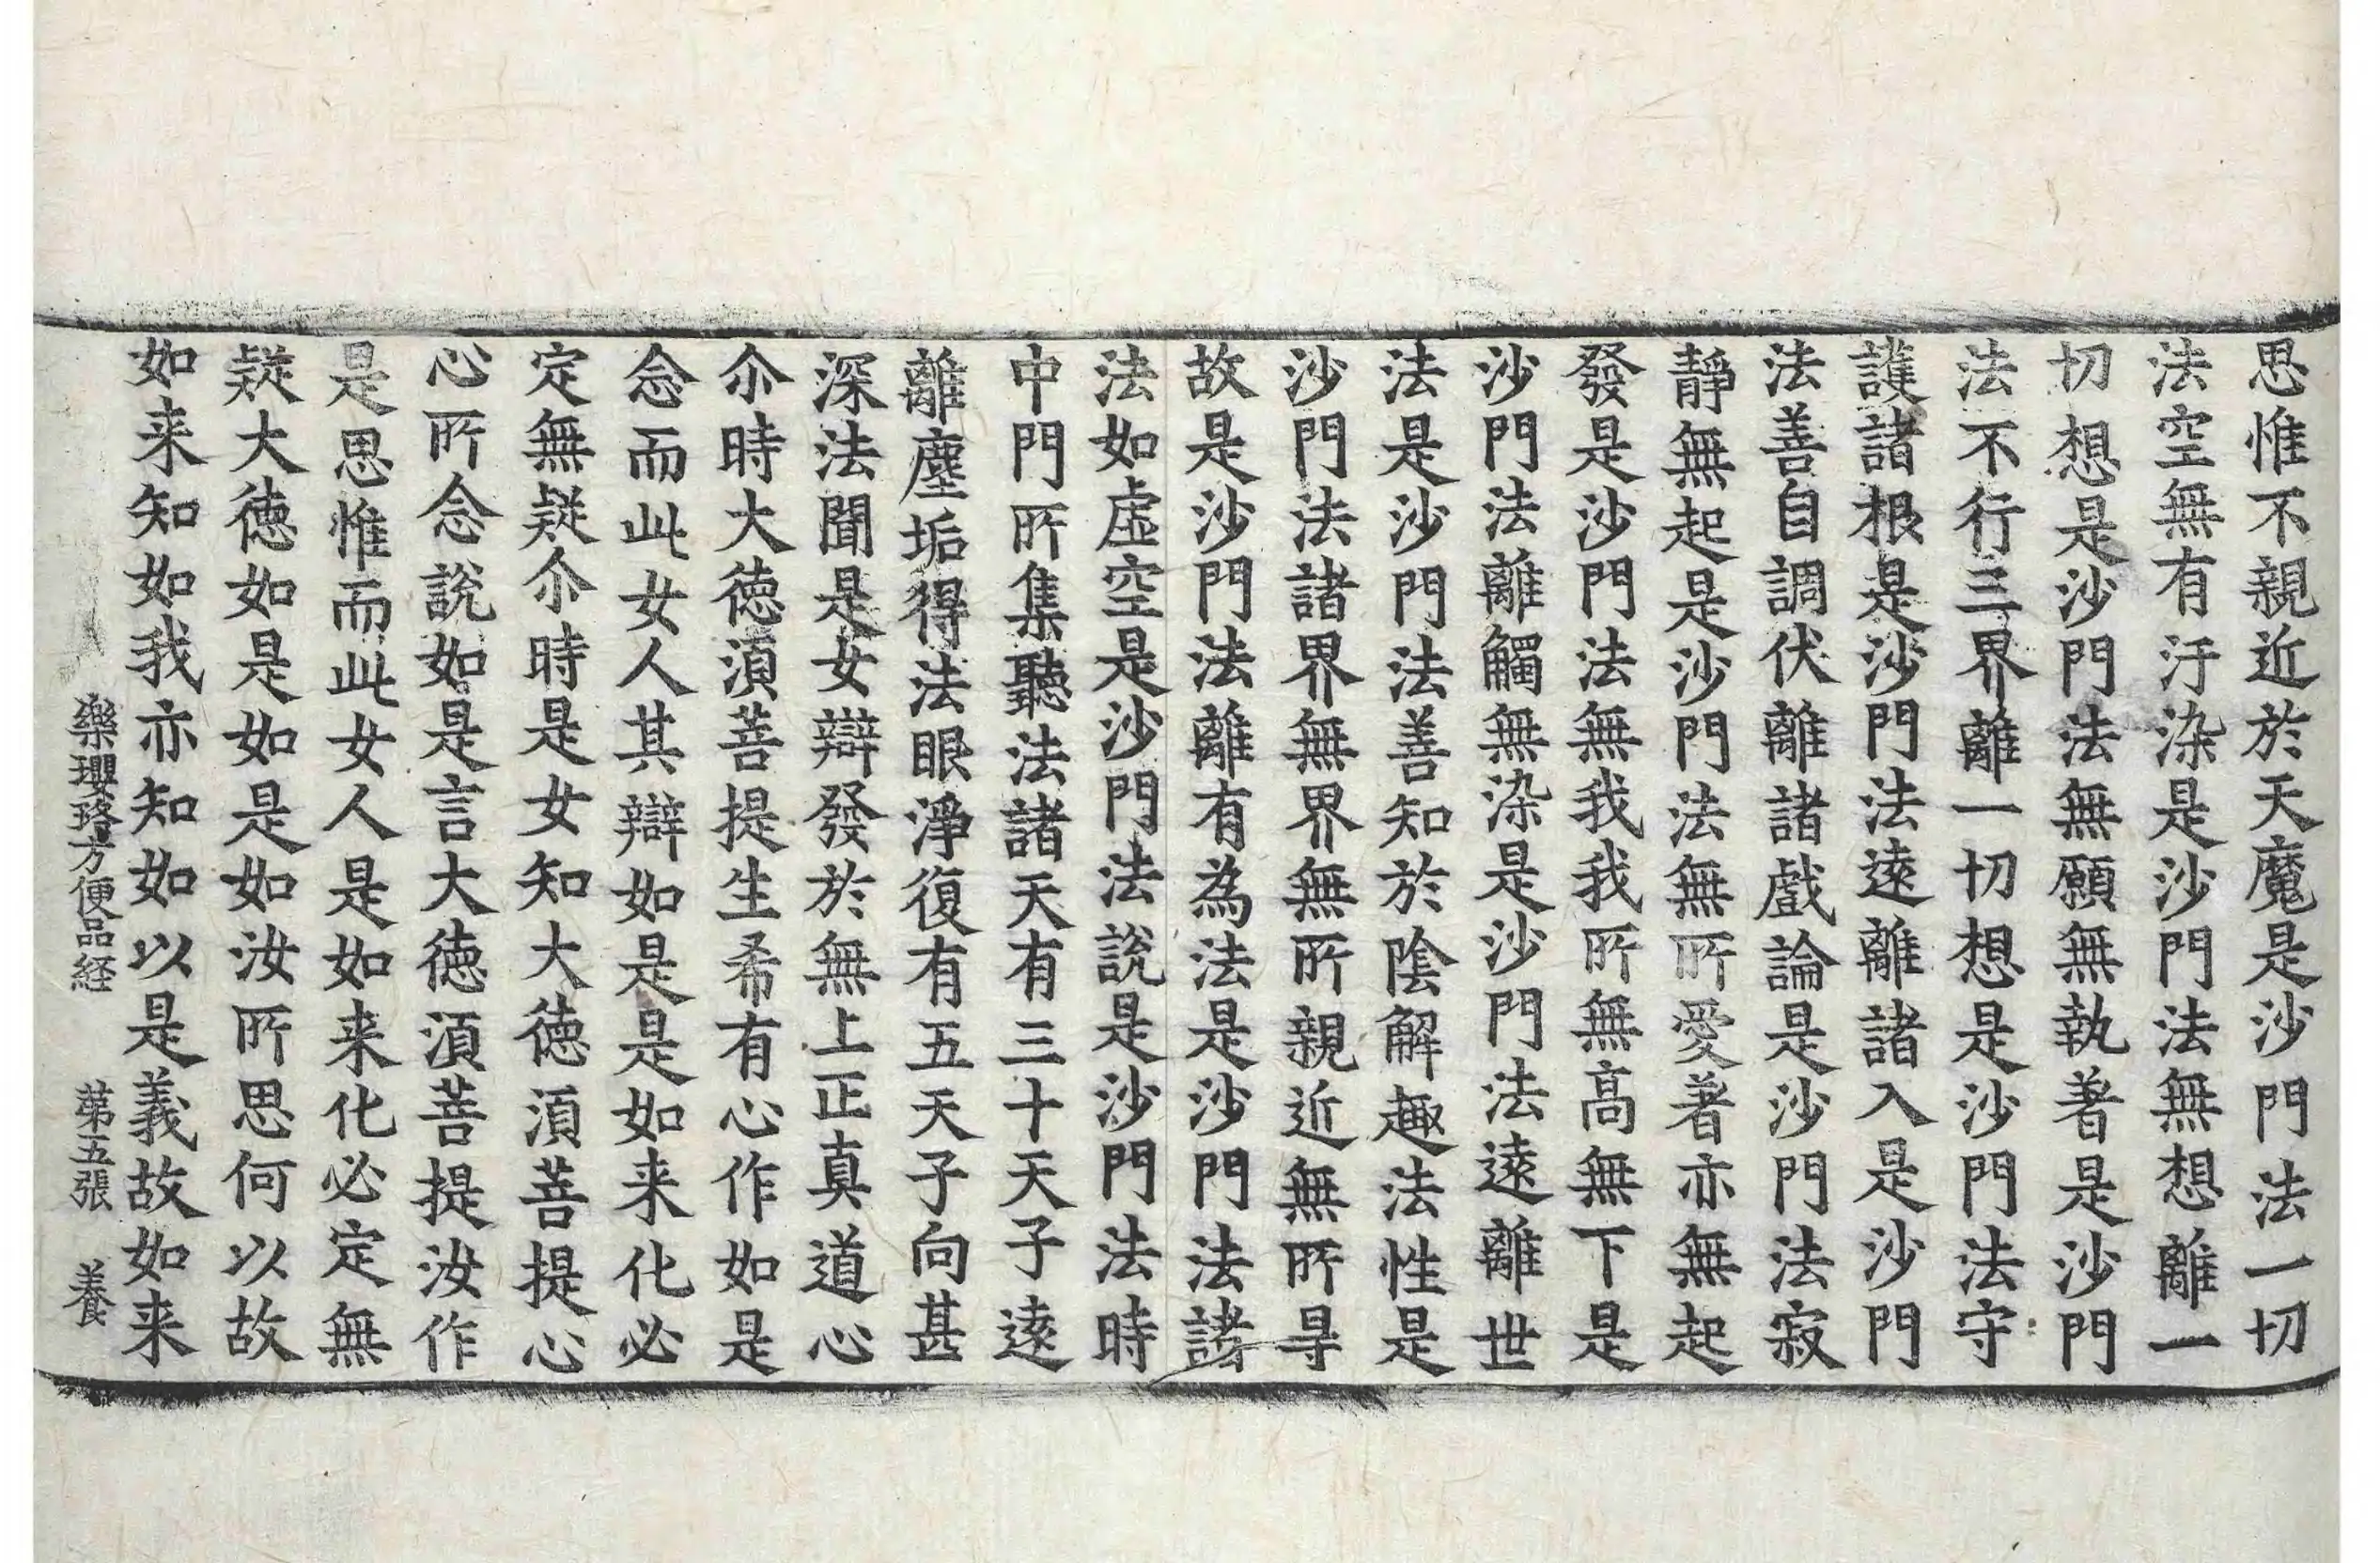 思惟不親近於天魔是沙門法一切
法空無有汙染是沙門法無想離一
切想是沙門法無願無執著是沙門
法不行三界離一切想是沙門法守
護諸根是沙門法遠離諸入是沙門
法善自調伏離諸戲論是沙門法寂
靜無起是沙門法無所愛著亦無起
發是沙門法無我我所無高無下是
沙門法離觸無染是沙門法遠離世
法是沙門法善知於陰解趣法性是
沙門法諸界無界無所親近無所㝵
故是沙門法離有為法是沙門法諸
法如虛空是沙門法說是沙門法時
中門所集聽法諸天有三十天子遠
離塵垢得法眼淨復有五天子向甚
深法聞是女辯發於無上正真道心
尒時大德湏菩提生希有心作如是
念而此女人其辯如是是如来化必
定無疑尒時是女知大德湏菩提心
心所念說如是言大德湏菩提汝作
是思惟而此女人是如来化必定無
疑大德如是如是如汝所思何以故
如来知如我亦知如以是義故如来
樂瓔珞方便品経 苐五張 養